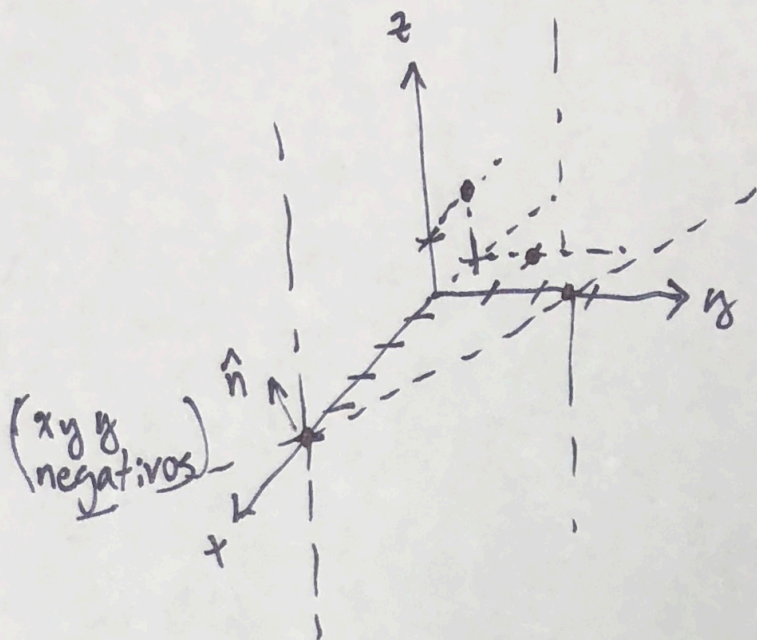 z
y
n̂
(x y y
negativos)
x